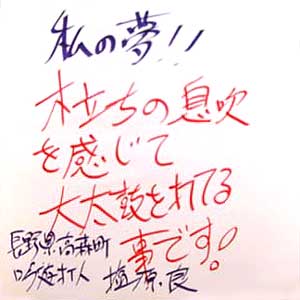 私の夢!!
木立ちの息吹
を感じて
大太鼓を打てる
事です!
長野県高森町
打人 塩原良